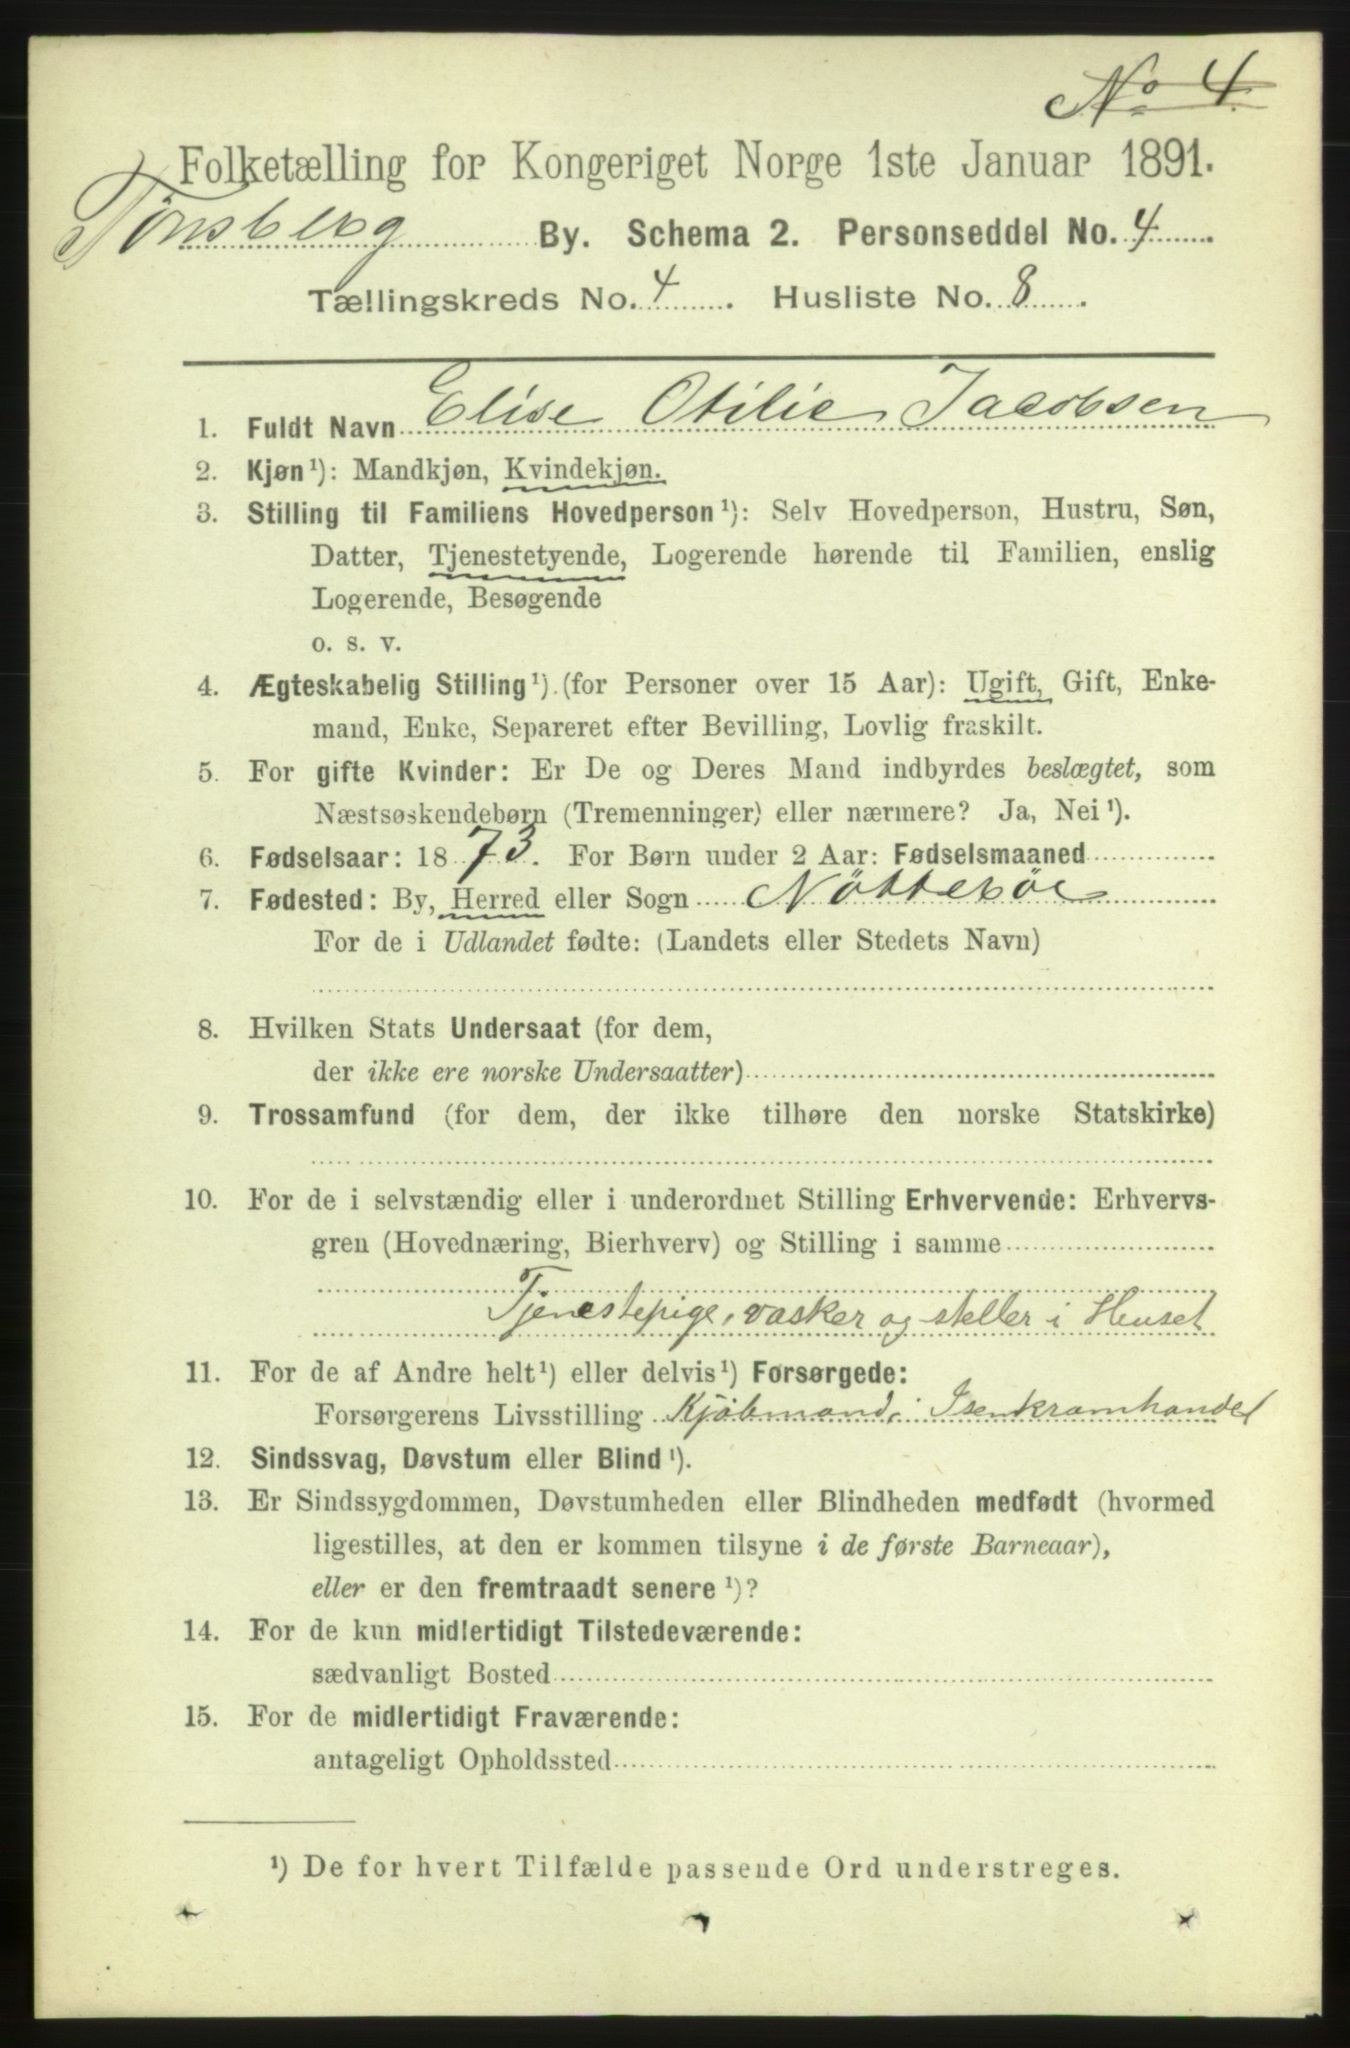 No 4.
Folketælling for Kongeriget Norge 1ste Januar 1891.
Tönsberg By. Schema 2. Personseddel No. 4.
Tællingskreds No. 4. Husliste No. 8.
1. Fuldt Navn Elise Otilie Jacobsen
2. Kjøn ¹): Mandkjøn, Kvindekjøn.
3. Stilling til Familiens Hovedperson ¹): Selv Hovedperson, Hustru, Søn,
Datter, Tjenestetyende, Logerende hørende til Familien, enslig
Logerende, Besøgende
o. s. v.
4. Ægteskabelig Stilling ¹) (for Personer over 15 Aar): Ugift, Gift, Enke-
mand, Enke, Separeret efter Bevilling, Lovlig fraskilt.
5. For gifte Kvinder: Er De og Deres Mand indbyrdes beslægtet, som
Næstsøskendebørn (Tremenninger) eller nærmere? Ja, Nei ¹).
6. Fødselsaar: 1873. For Børn under 2 Aar: Fødselsmaaned
7. Fødested: By, Herred eller Sogn Nötteröe
For de i Udlandet fødte: (Landets eller Stedets Navn)
8. Hvilken Stats Undersaat (for dem,
der ikke ere norske Undersaatter)
9. Trossamfund (for dem, der ikke tilhøre den norske Statskirke)
10. For de i selvstændig eller i underordnet Stilling Erhvervende: Erhvervs-
gren (Hovednæring, Bierhverv) og Stilling i samme
Tjenestepige, vasker og steller i Huset
11. For de af Andre helt ¹) eller delvis ¹) Forsørgede:
Forsørgerens Livsstilling Kjöbmand, i Isenkramhandel
12. Sindssvag, Døvstum eller Blind ¹).
13. Er Sindssygdommen, Døvstumheden eller Blindheden medfødt (hvormed
ligestilles, at den er kommen tilsyne i de første Barneaar),
eller er den fremtraadt senere ¹)?
14. For de kun midlertidigt Tilstedeværende:
sædvanligt Bosted
15. For de midlertidigt Fraværende:
antageligt Opholdssted
¹) De for hvert Tilfælde passende Ord understreges.